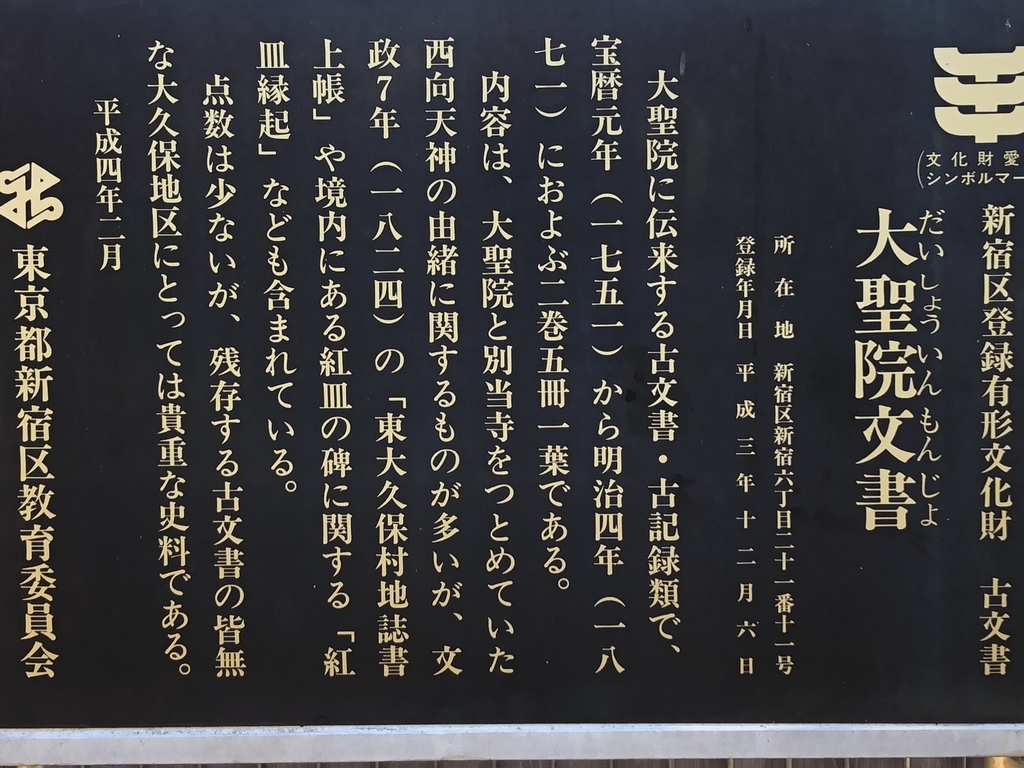 文化財愛
シンボルマー
新宿区登録有形文化財 古文書
だいしょういんもんじょ
大聖院文書
所在地 新宿区新宿六丁目二十一番十一号
登録年月日 平成三年十二月六日
大聖院に伝来する古文書・古記録類で、
宝暦元年(一七五一)から明治四年(一八
七一)におよぶ二巻五冊一葉である。
内容は、大聖院と別当寺をつとめていた
西向天神の由緒に関するものが多いが、文
政7年(一八二四)の「東大久保村地誌書
上帳」や境内にある紅皿の碑に関する「紅
皿縁起」なども含まれている。
点数は少ないが、残存する古文書の皆無
な大久保地区にとっては貴重な史料である。
平成四年二月
東京都新宿区教育委員会